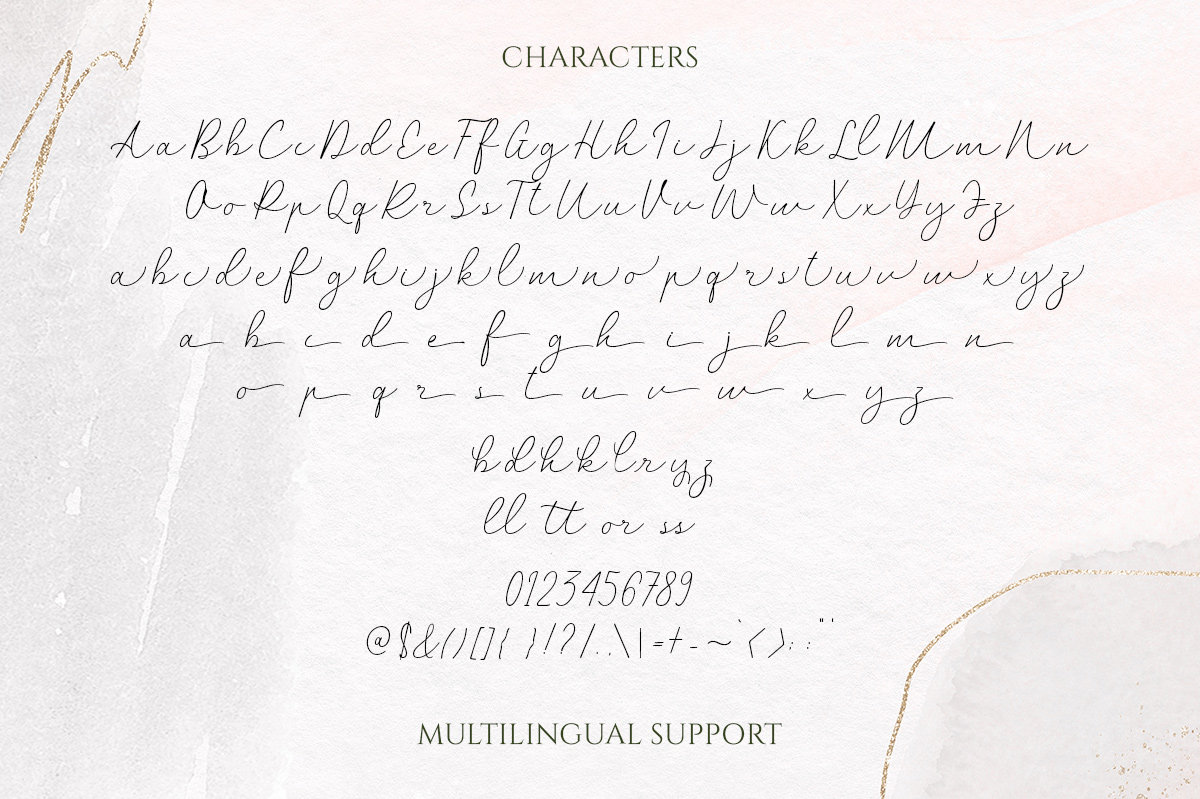 CHARACTERS
AaBbCcDdEeFfGgHhIiJjKkLlMmNn
OoPpQqRrSsTtUuVvWwXxYyZz
abcdefghijklmnopqrstuvwxyz
a b c d e f g h i j k l m n
o p q r s t u v w x y z
bdhklryz
ll tt or ss
0123456789
@$&()[]{ }!?/.,\|=+-~`<>:;"'
MULTILINGUAL SUPPORT